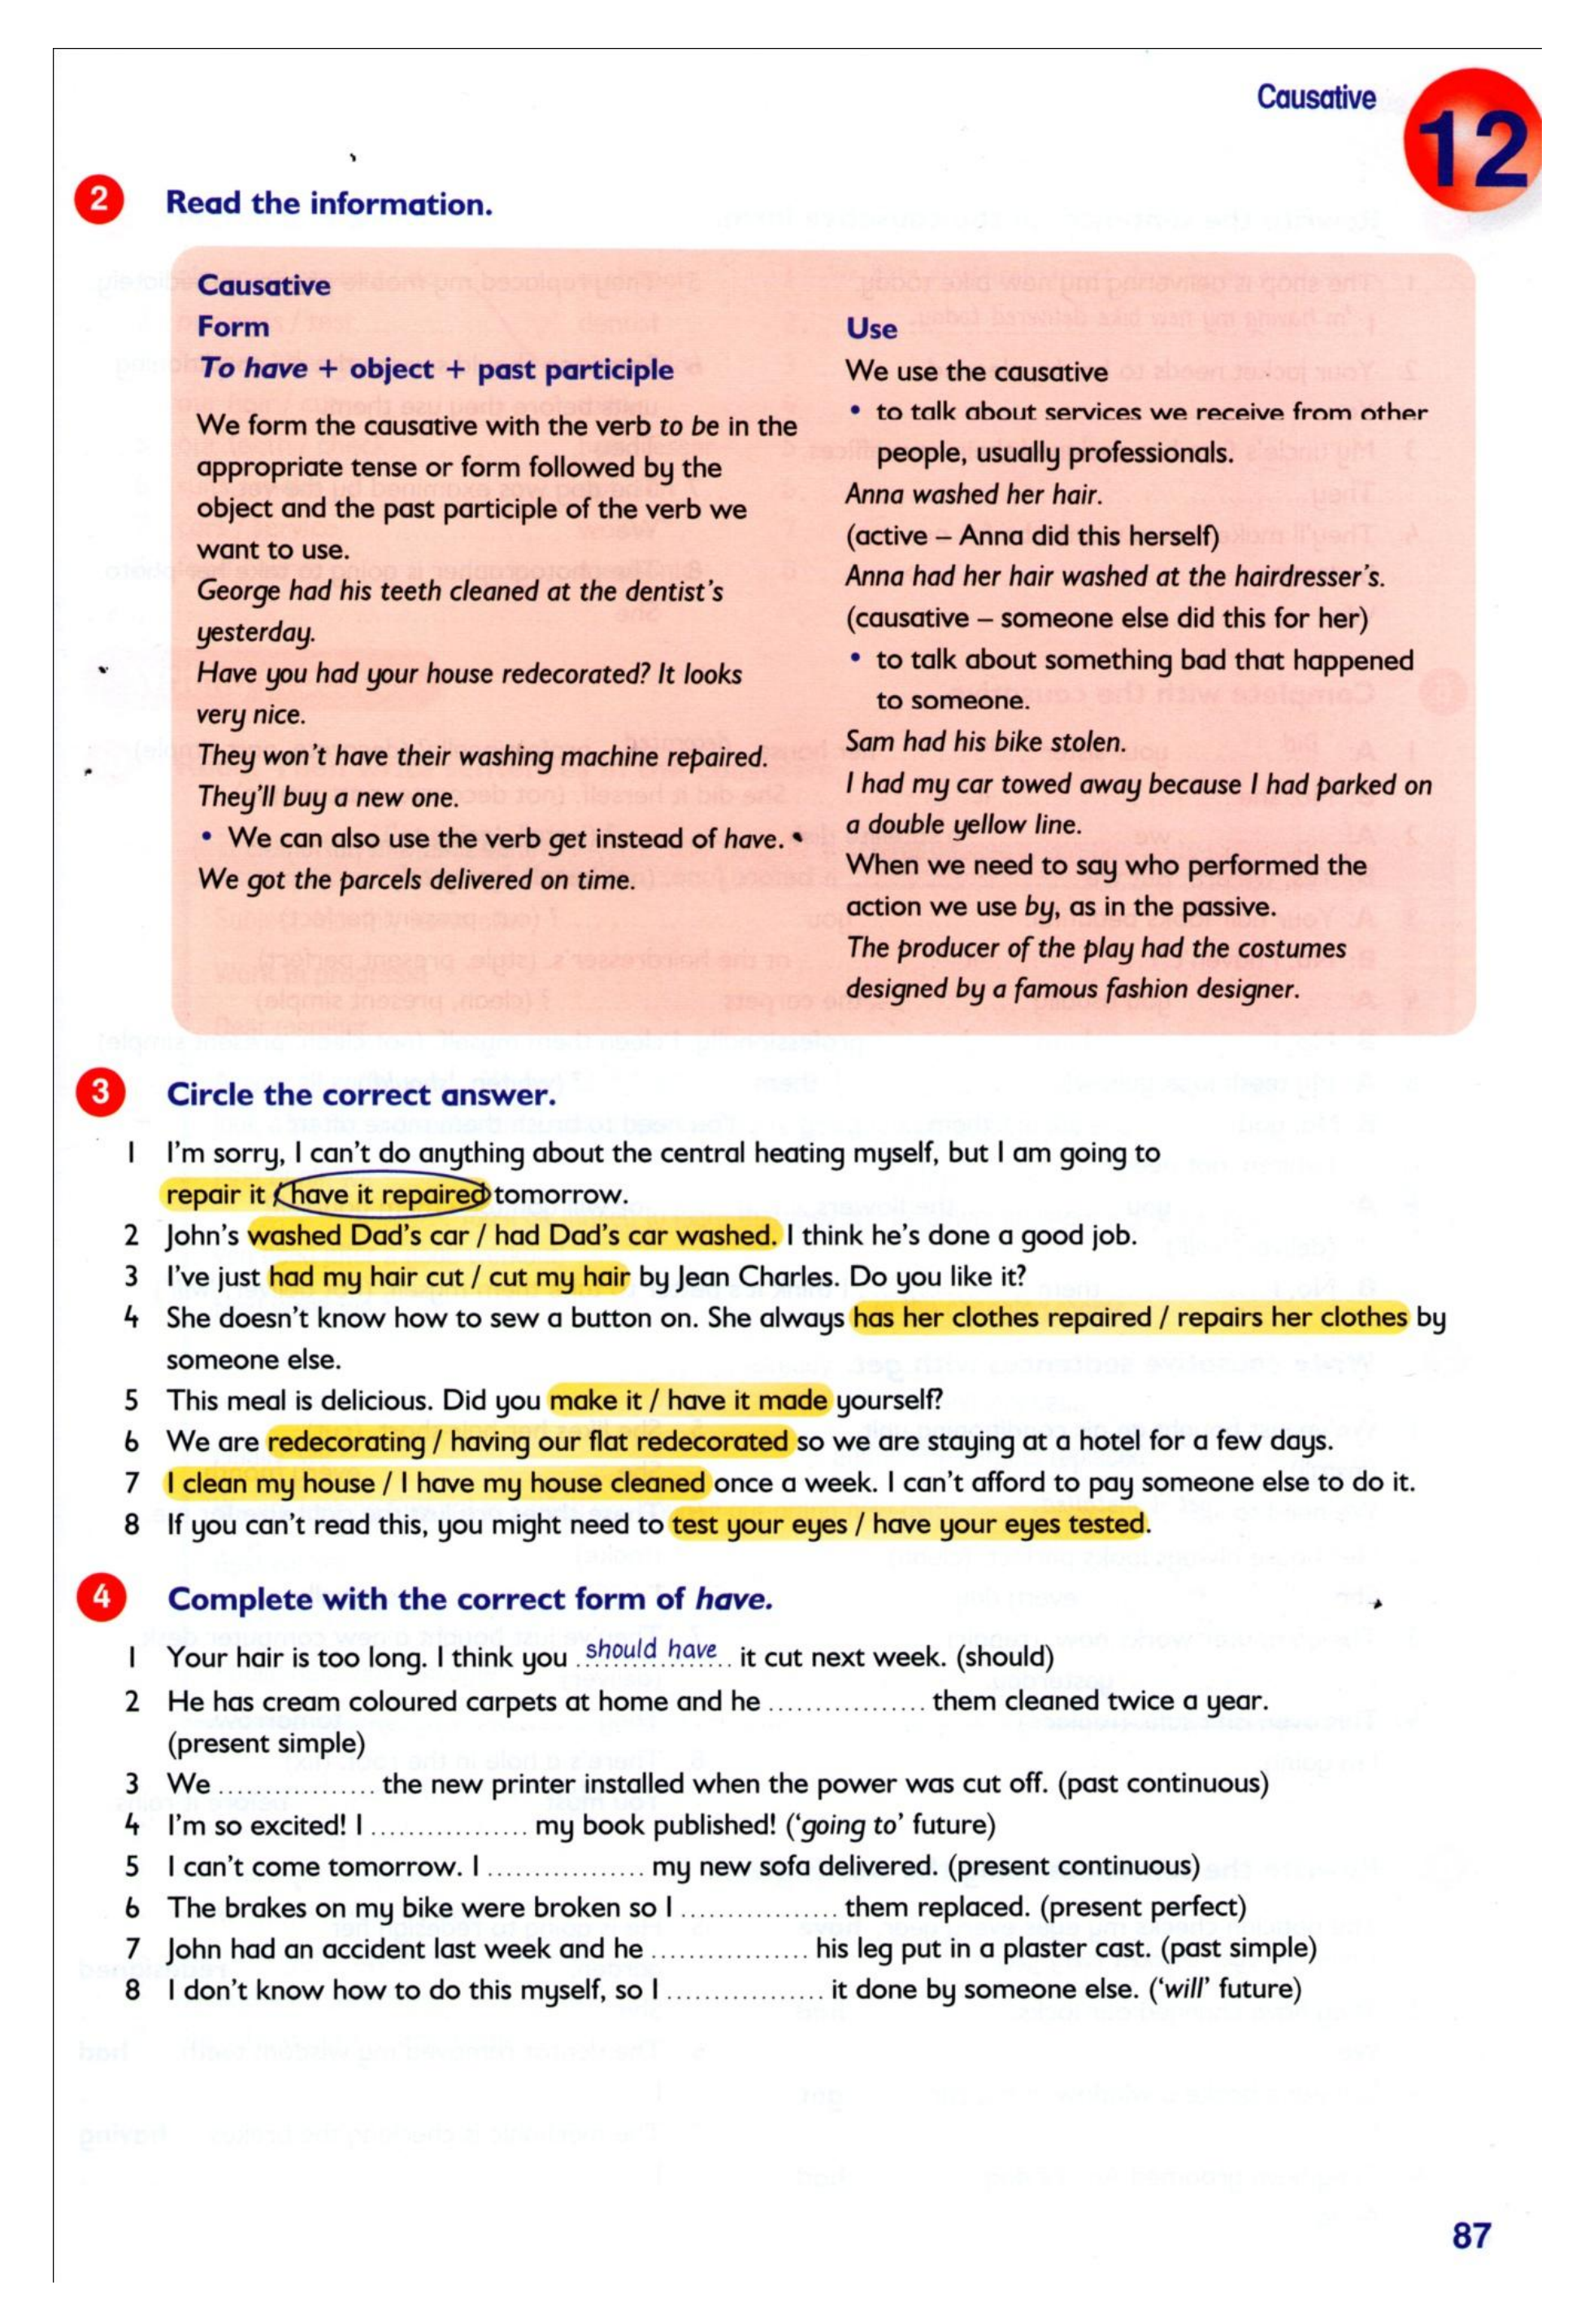 Causative
12
2 Read the information.
Causative
Form
To have + object + past participle
We form the causative with the verb to be in the
appropriate tense or form followed by the
object and the past participle of the verb we
want to use.
George had his teeth cleaned at the dentist's
yesterday.
Have you had your house redecorated? It looks
very nice.
They won't have their washing machine repaired.
They'll buy a new one.
• We can also use the verb get instead of have.
We got the parcels delivered on time.
Use
We use the causative
• to talk about services we receive from other
people, usually professionals.
Anna washed her hair.
(active – Anna did this herself)
Anna had her hair washed at the hairdresser's.
(causative – someone else did this for her)
• to talk about something bad that happened
to someone.
Sam had his bike stolen.
I had my car towed away because I had parked on
a double yellow line.
When we need to say who performed the
action we use by, as in the passive.
The producer of the play had the costumes
designed by a famous fashion designer.
3 Circle the correct answer.
1 I'm sorry, I can't do anything about the central heating myself, but I am going to
repair it / have it repaired tomorrow.
2 John's washed Dad's car / had Dad's car washed. I think he's done a good job.
3 I've just had my hair cut / cut my hair by Jean Charles. Do you like it?
4 She doesn't know how to sew a button on. She always has her clothes repaired / repairs her clothes by
someone else.
5 This meal is delicious. Did you make it / have it made yourself?
6 We are redecorating / having our flat redecorated so we are staying at a hotel for a few days.
7 I clean my house / I have my house cleaned once a week. I can't afford to pay someone else to do it.
8 If you can't read this, you might need to test your eyes / have your eyes tested.
4 Complete with the correct form of have.
1 Your hair is too long. I think you should have it cut next week. (should)
2 He has cream coloured carpets at home and he ................. them cleaned twice a year.
(present simple)
3 We ................. the new printer installed when the power was cut off. (past continuous)
4 I'm so excited! I ................. my book published! ('going to' future)
5 I can't come tomorrow. I ................. my new sofa delivered. (present continuous)
6 The brakes on my bike were broken so I ................. them replaced. (present perfect)
7 John had an accident last week and he ................. his leg put in a plaster cast. (past simple)
8 I don't know how to do this myself, so I ................. it done by someone else. ('will' future)
87